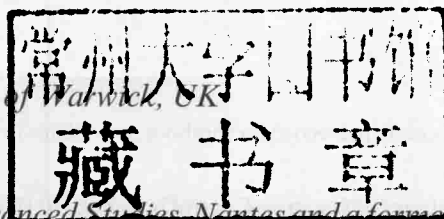 常州大学图书馆
of Warwick, UK
藏书章
anced Studies, Nantes and a form